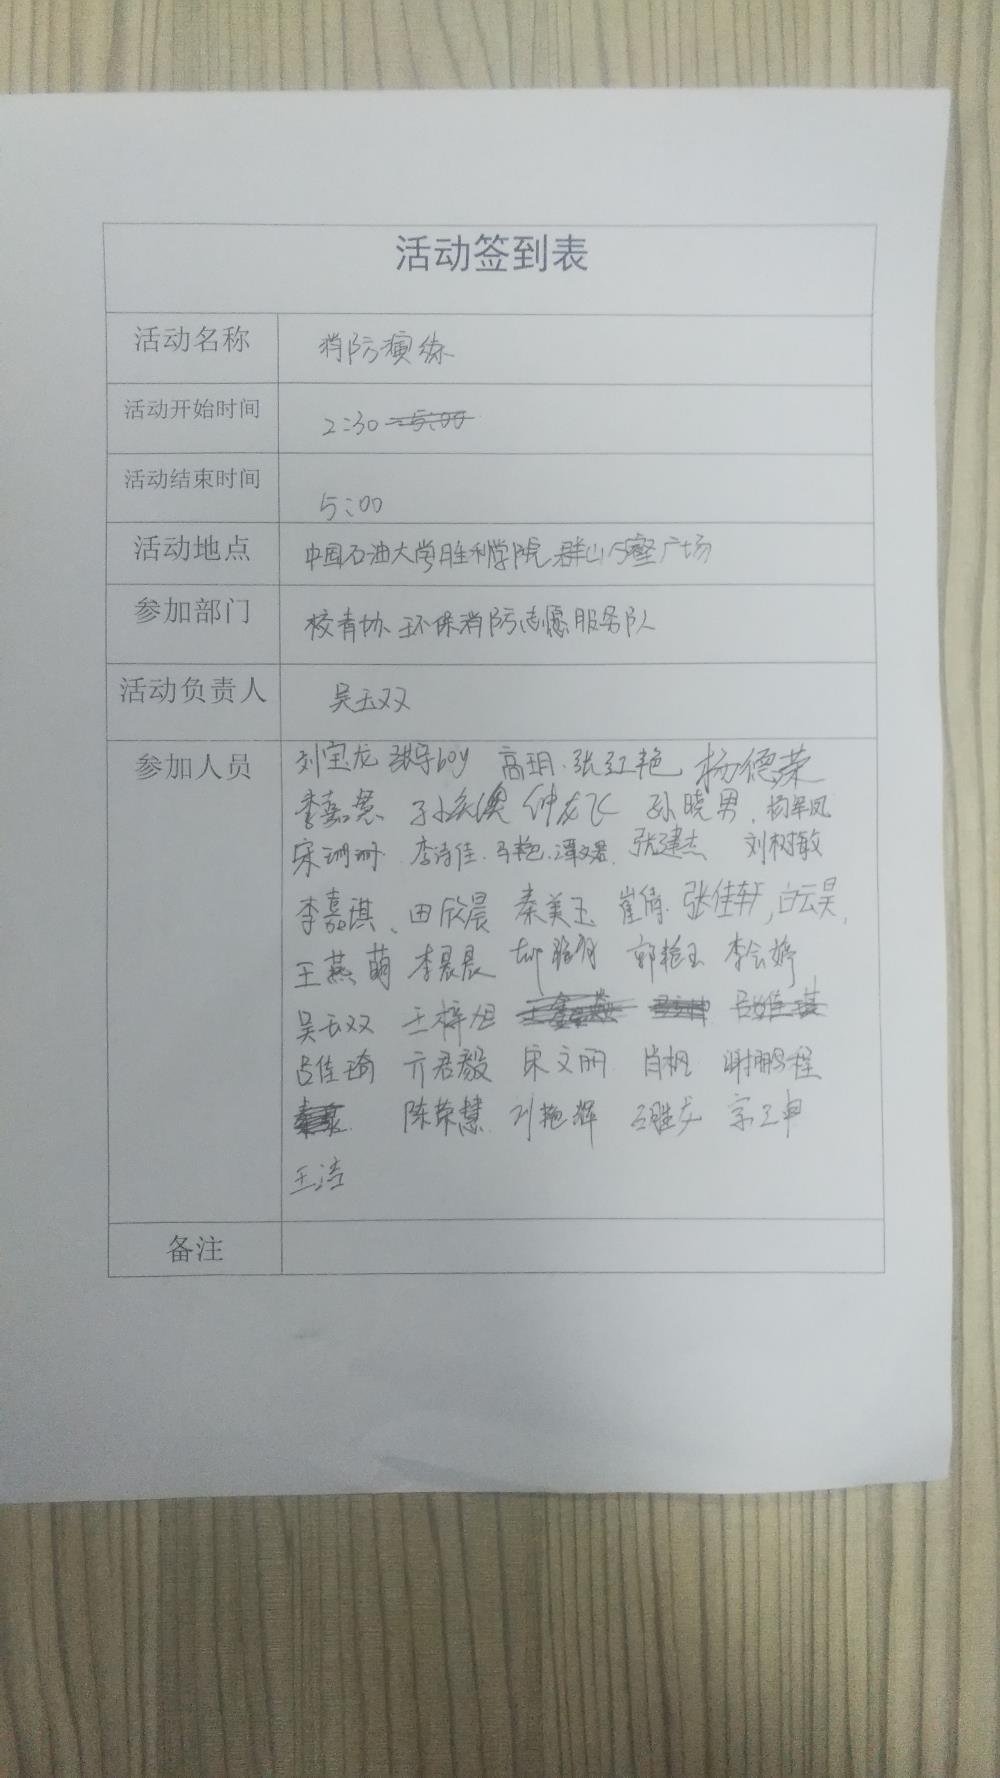 活动签到表
活动名称 消防演练
活动开始时间 2:30 5:00
活动结束时间 5:00
活动地点 中国石油大学胜利学院 群山 广场
参加部门 校青协 环保消防志愿服务队
活动负责人 吴玉双
参加人员 刘宝龙 高玥 张红艳 杨德荣
李嘉慧 钟龙飞 孙晓男 杨翠凤
宋珊珊 李诗佳 马艳 谭文君 张建杰 刘树敏
李嘉琪 田欣晨 秦美玉 崔倩 张佳轩 白云昊
王燕萌 李晨晨 郭艳玉 李会婷
吴玉双 王梓旭
吕佳琦 亓君毅 宋文丽 肖枫 谢鹏程
陈荣慧 刘艳辉 宗卫申
王洁
备注